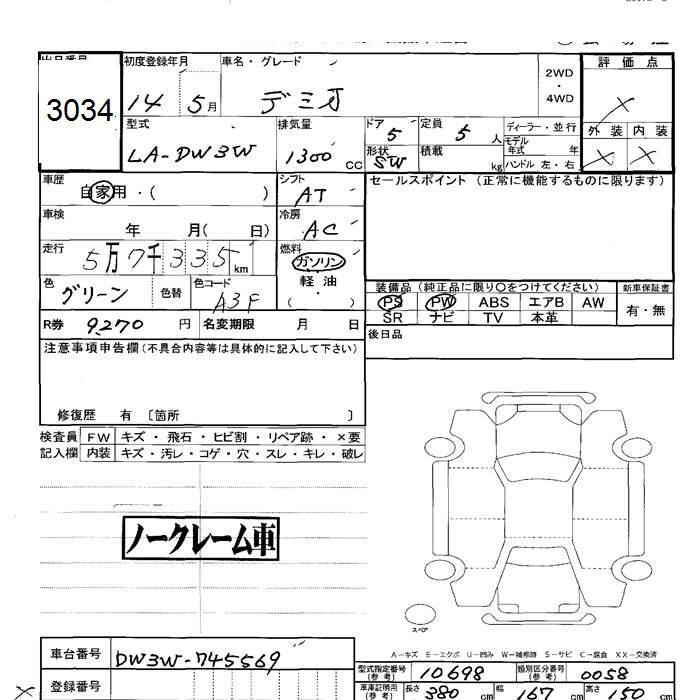 3034
初度登録年月 車名・グレード
14 5月 デミオ
2WD
・
4WD
評価点
×
外装 内装
× ×
型式 排気量 ドア 定員 ディーラー・並行
LA-DW3W 1300 CC 5 5 人
モデル年式 年
形状 SW 積載 kg ハンドル 左・右
車歴 自家用・( )
シフト AT
セールスポイント(正常に機能するものに限ります)
車検 年 月( 日)
冷房 AC
走行 5万7千335km
燃料 ガソリン
軽油
( ・ )
色 グリーン 色替 色コード A3F
装備品(純正品に限り○をつけてください) 新車保証書
PS PW ABS エアB AW 有・無
SR ナビ TV 本革
R券 9,270 円 名変期限 月 日
後日品
注意事項申告欄(不具合内容等は具体的に記入して下さい)
修復歴 有〔箇所 〕
検査員 FW キズ・飛石・ヒビ割・リペア跡・×要
記入欄 内装 キズ・汚レ・コゲ・穴・スレ・キレ・破レ
ノークレーム車
スペア
A-キズ E-エクボ U-凹み W-補修跡 S-サビ C-腐食 XX-交換済
車台番号 DW3W-745569
登録番号
型式指定番号(参考) 10698 類別区分番号(参考) 0058
車庫証明用(参考) 長さ 380 cm 幅 167 cm 高さ 150 cm